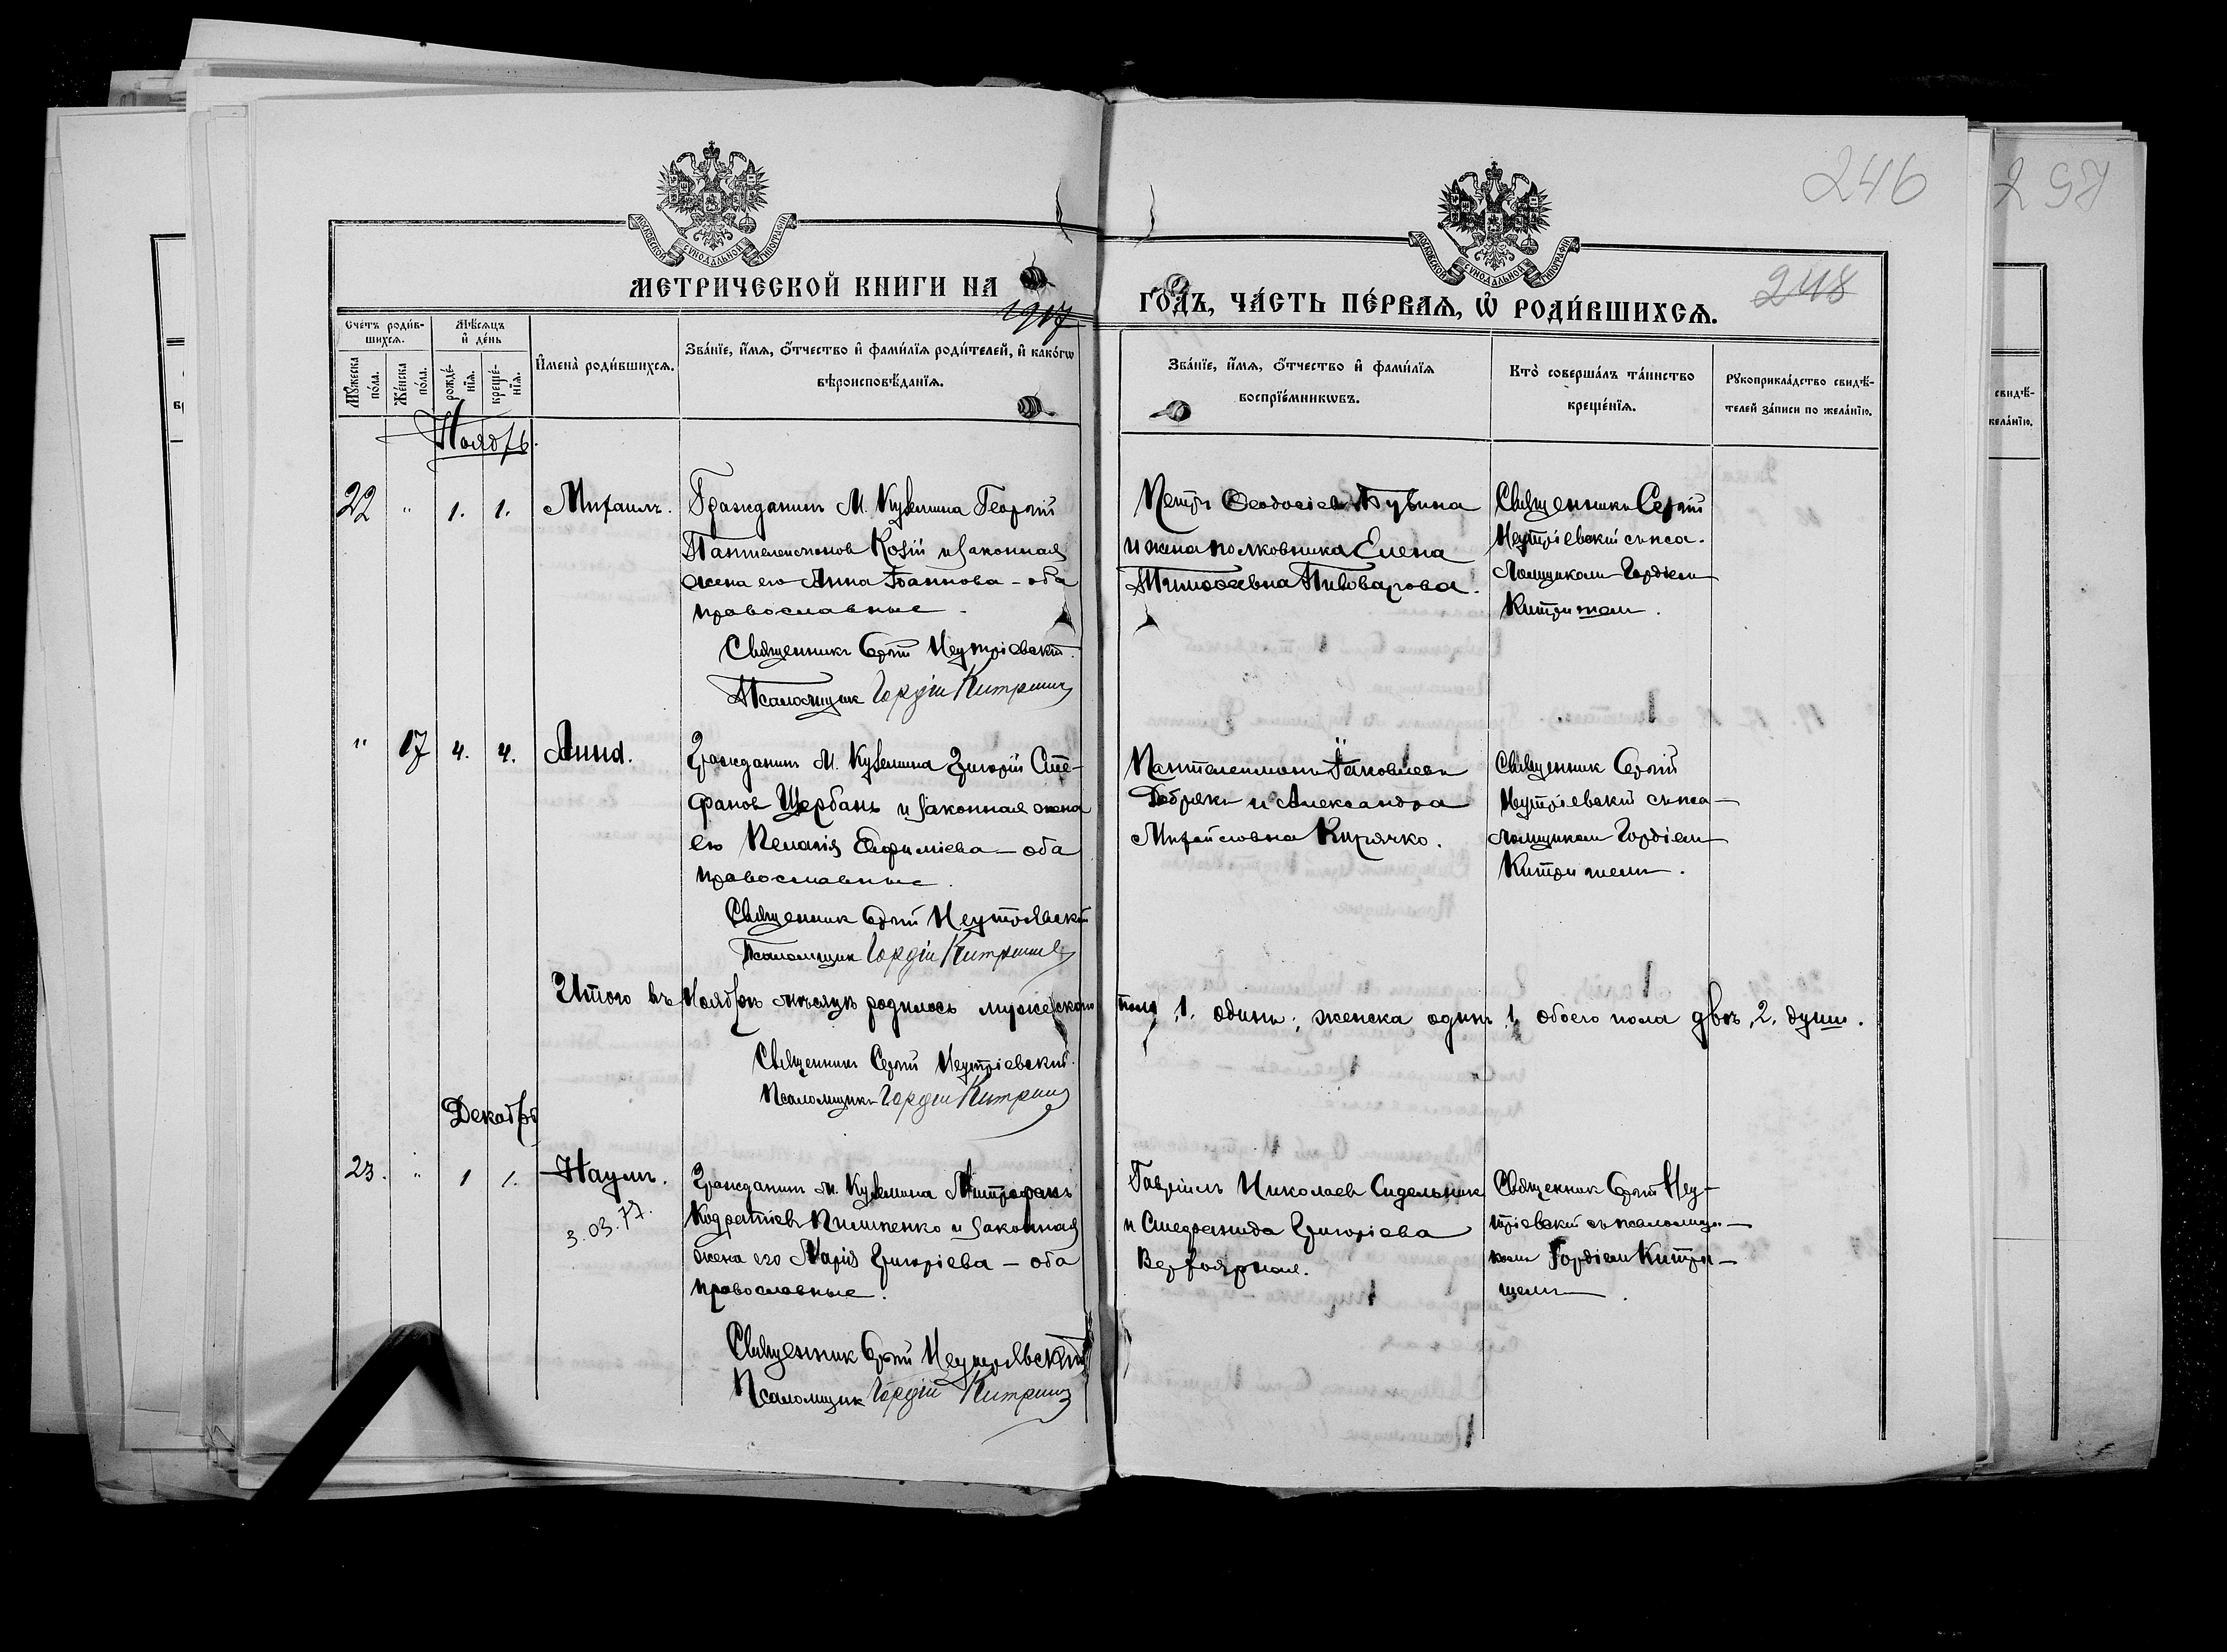 246
257
248
МОСКОВСКОЙ СѴНОДАЛЬНОЙ ТИПОГРАФІИ
МОСКОВСКОЙ СѴНОДАЛЬНОЙ ТИПОГРАФІИ
МЕТРИЧЕСКОЙ КНИГИ НА 1917 ГО́ДЪ, ЧА́СТЬ ПЕ́РВАЯ, Ѡ҆ РОДИ́ВШИХСЯ.
Сче́тъ роди́в-
шихся.
Мѣ́сяцъ
и҆ де́нь
Мꙋ́жеска
по́ла.
Же́нска
по́ла.
рожде́-
нїя.
креще́-
нїя.
И҆мена̀ роди́вшихся.
Зва́нїе, и҆́мя, ѻ҆́тчество и҆ фами́лїя роди́телей, и҆ како́гѡ
вѣроисповѣ́данїя.
Зва́нїе, и҆́мя, ѻ҆́тчество и҆ фами́лїя
воспрїе́мникѡвъ.
Кто̀ соверша́лъ та́инство
креще́нїя.
Рꙋкоприкла́дство свидѣ́-
телей за́писи по жела́нїю.
свидѣ́-
жела́нїю.
Ноябрь.
22 " 1. 1. Михаилъ.
Гражданинъ М. Куземина Георгій
Пантелеимонов Козій и законная
жена его Анна Іоаннова - оба
православные.
Священникъ Сергій Неутріевскій.
Псаломщик Гордій Китриш
Петръ Феодосіев Бубина
и жена полковника Елена
Тимофеевна Пивоварова.
Священникъ Сергій
Неутріевскій съ пса-
ломщиком Гордіем
Китришем.
" 17 4. 4. Анна.
Гражданин М. Куземина Григорій Сте-
фанов Щербань и законная жена
его Пелагія Евфиміева - оба
православные.
Священник Сергій Неутріевскій
Псаломщик Гордій Китриш
Пантелеимонъ Іаковлевъ
Добряк и Александра
Михайловна Кирячко.
Священник Сергій
Неутріевскій съ пса-
ломщиком Гордіем
Китришем.
Итого въ Ноябрѣ мѣсяцѣ родилось мужескаго пола 1. одинъ; женска один 1. обоего пола двѣ 2. души.
Священник Сергій Неутріевскій.
Псаломщикъ Гордій Китриш
Декабрь
23. " 1 1. Наумъ.
3.03.77.
Гражданин м. Куземина Митрофанъ
Кодратіев Пилипенко и законная
жена его Марія Григоріева - оба
православные.
Священник Сергій Неутріевскій
Псаломщик Гордій Китриш
Гавріилъ Николаев Сидельник
и Стефанида Григоріева
Священник Сергій Неу-
тріевскій съ псаломщи-
ком Гордіем Китри-
шемъ.